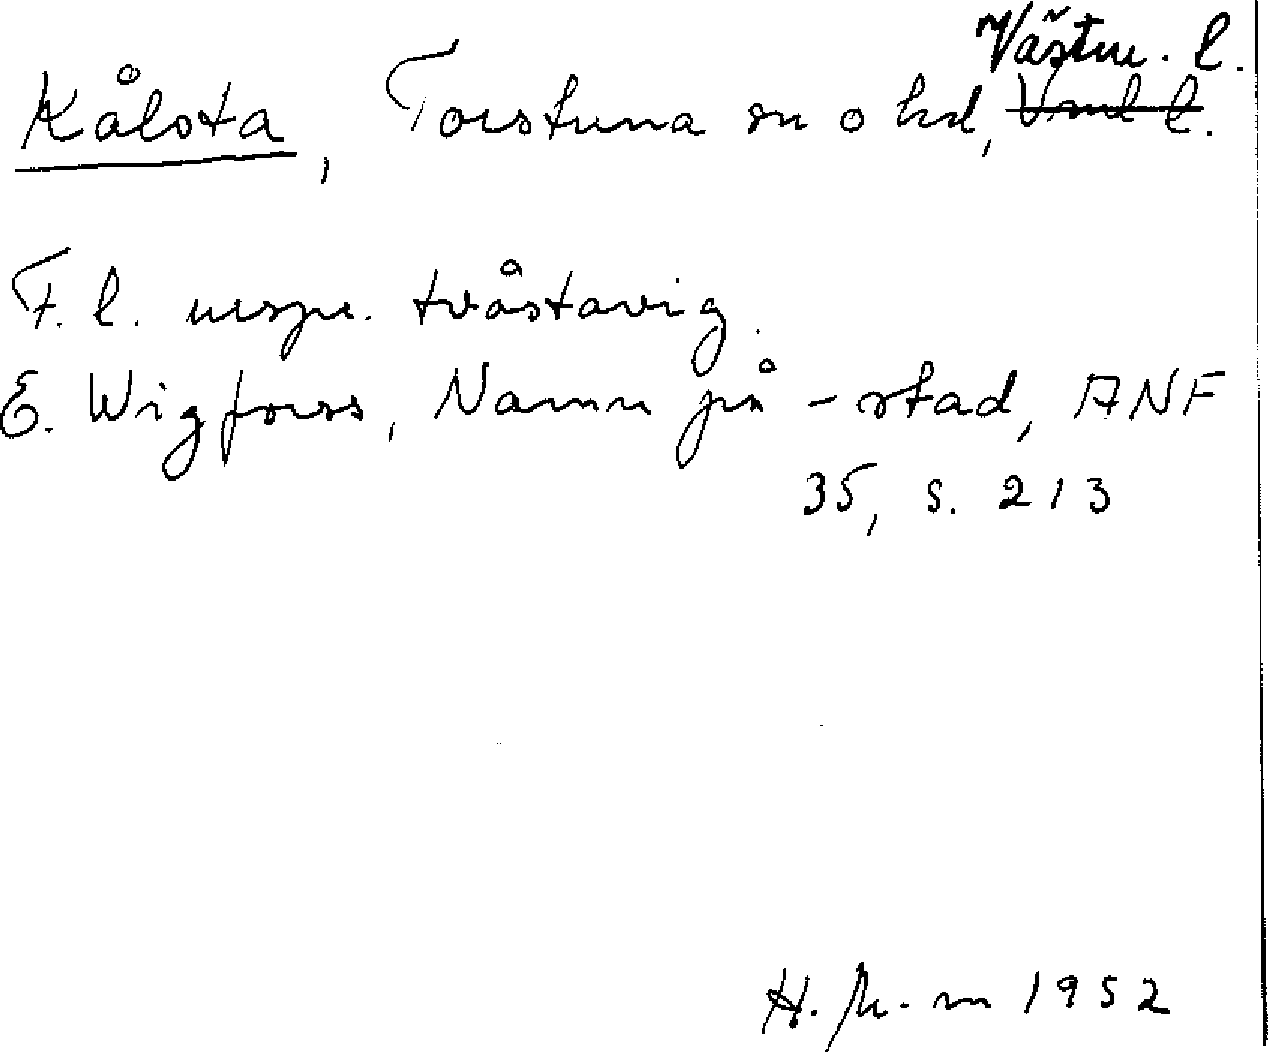 Västm. l.
Kålsta, Torstuna sn o hd, Vml l.
F. l. urspr. tvåstavig.
E. Wigforss, Namn på -stad, ANF
35, s. 213
H. 1952